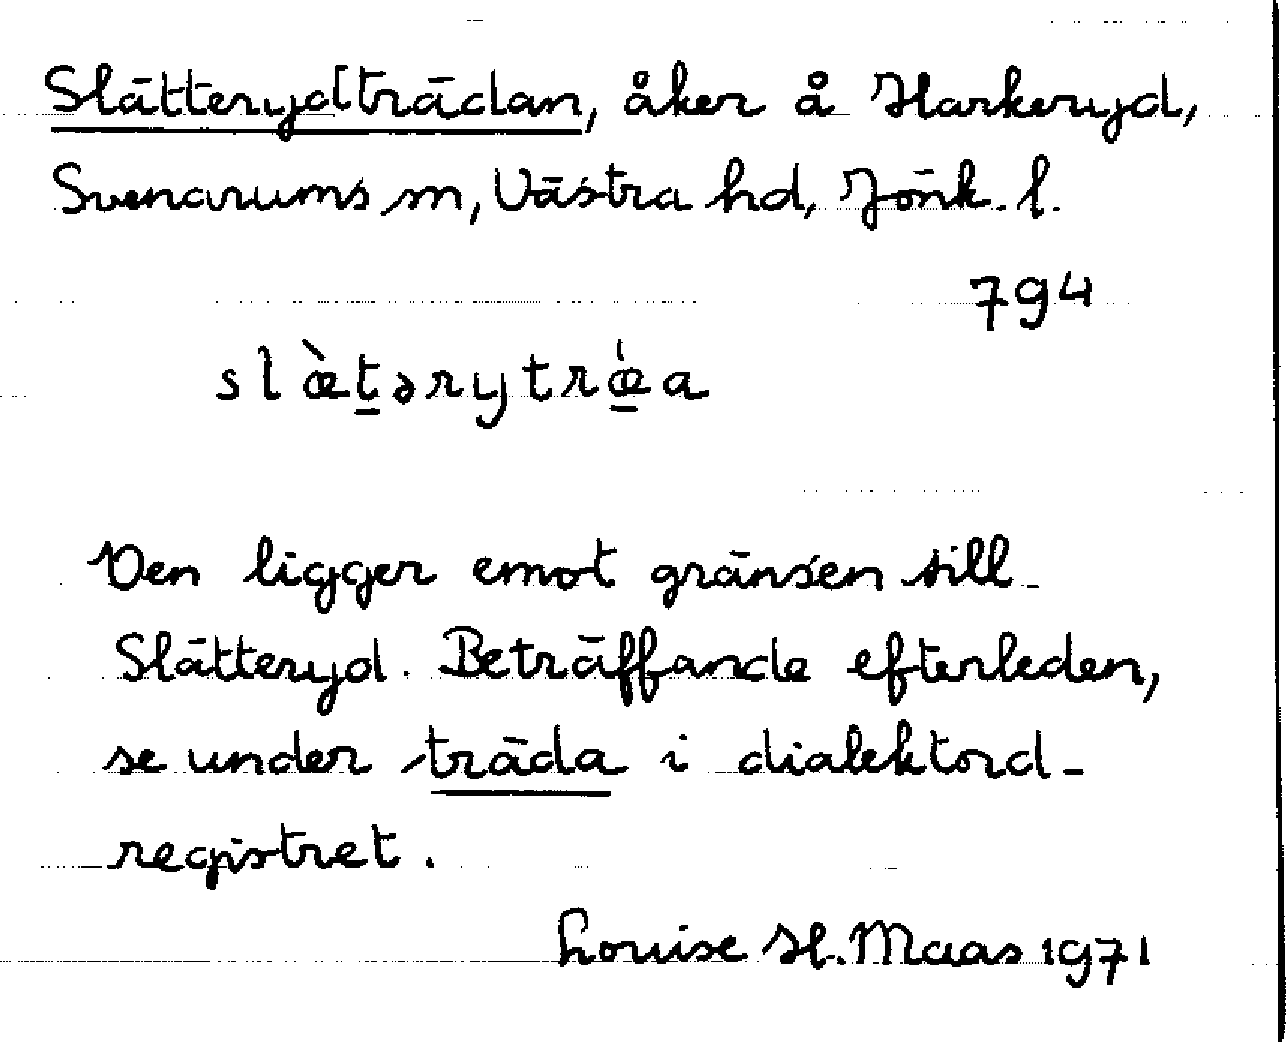 Slätteryd[trädan, åker å Harkeryd,
Svenarums sn, Västra hd, Jönk. l.
794
slæ̀t̠ərytrǿ̠a
Den ligger emot gränsen till
Slätteryd. Beträffande efterleden,
se under träda i dialektord-
registret.
Louise H. Maas 1971